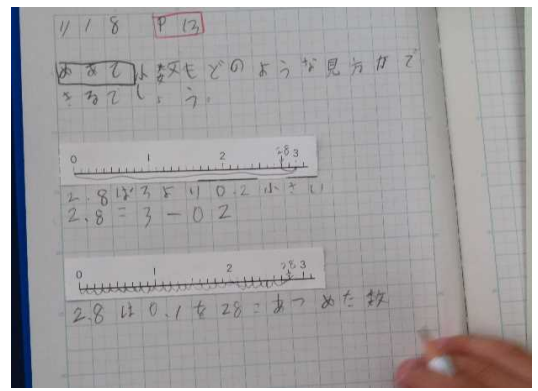 11/8 P13
めあて 小数はどのような見方がで
きるでしょう。
0 1 2 2.8 3
2.8は3より0.2小さい
2.8=3-0.2
0 1 2 2.8 3
2.8は0.1を28こあつめた数